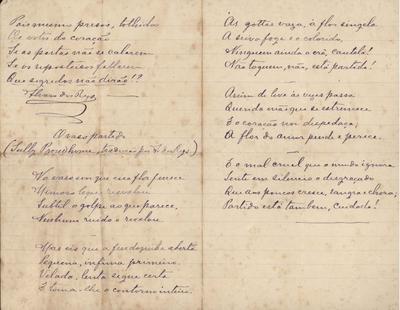 Pois mesmo presos, tolhidos
Os votos do coração
Se as portas não se calarem
Se os reposteiros fallarem
Que segredos não dirão!?
O vaso partido
(Sully Proudhome, por
No vaso em que essa flor fenece
Mimoso leque resvalou
Subtil o golpe ao que parece,
Nenhum ruido o revelou
Mas eis que a fendazinha aberta
Pequena, infima primeiro
Velada, lenta segue certa
E toma-lhe o contorno inteiro.
Ás gottas vaza, á flor singela
A seiva foge e o olor,
Ninguem ainda o crê, cautela!
Não toquem, não, está partido!
Assim de leve ás vezes passa
Querida mão que se estremece
E o coração nos despedaça,
A flor do amor pende e perece.
E o mal cruel que o mundo ignora
Sente em silencio o desgraçado
Que aos poucos cresce, sangra e chora;
Partido está tambem, cuidado!